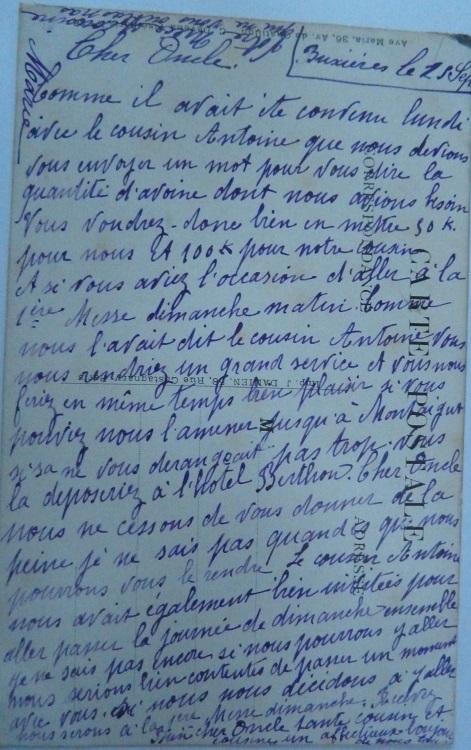 Cher Oncle.
Buxières le 25 Sep
Comme il avait été convenu lundi
avec le cousin Antoine que nous devions
vous envoyer un mot pour vous dire la
quantité d'avoine dont nous avions besoin
Vous voudrez-donc bien en mettre 50 K.
pour nous Et 100 K pour notre cousin
Et si vous aviez l'occasion d'aller à la
1ère Messe dimanche matin comme
nous l'avait dit le cousin Antoine vous
nous rendriez un grand service et vous nous
feriez en même temps bien plaisir si vous
pouviez nous l'amener jusqu'à Montaigut
si sa ne vous derangeait pas trop. vous
la deposeriez à l'Hôtel Berthon. Cher Oncle
nous ne cessons de vous donner de la
peine je ne sais pas quand es que nous
pourrons vous le rendre. Le cousin Antoine
nous avait également bien invitées pour
aller passer la journée de dimanche ensemble
je ne sais pas encore si nous pourrons y aller
nous serions bien contentes de passer un moment
avec vous. si nous nous décidons à y aller
nous serons à la 1ère Messe dimanche. Recevez
cher Oncle tante cousin et
CARTE POSTALE
CORRESPONDANCE
ADRESSE
M